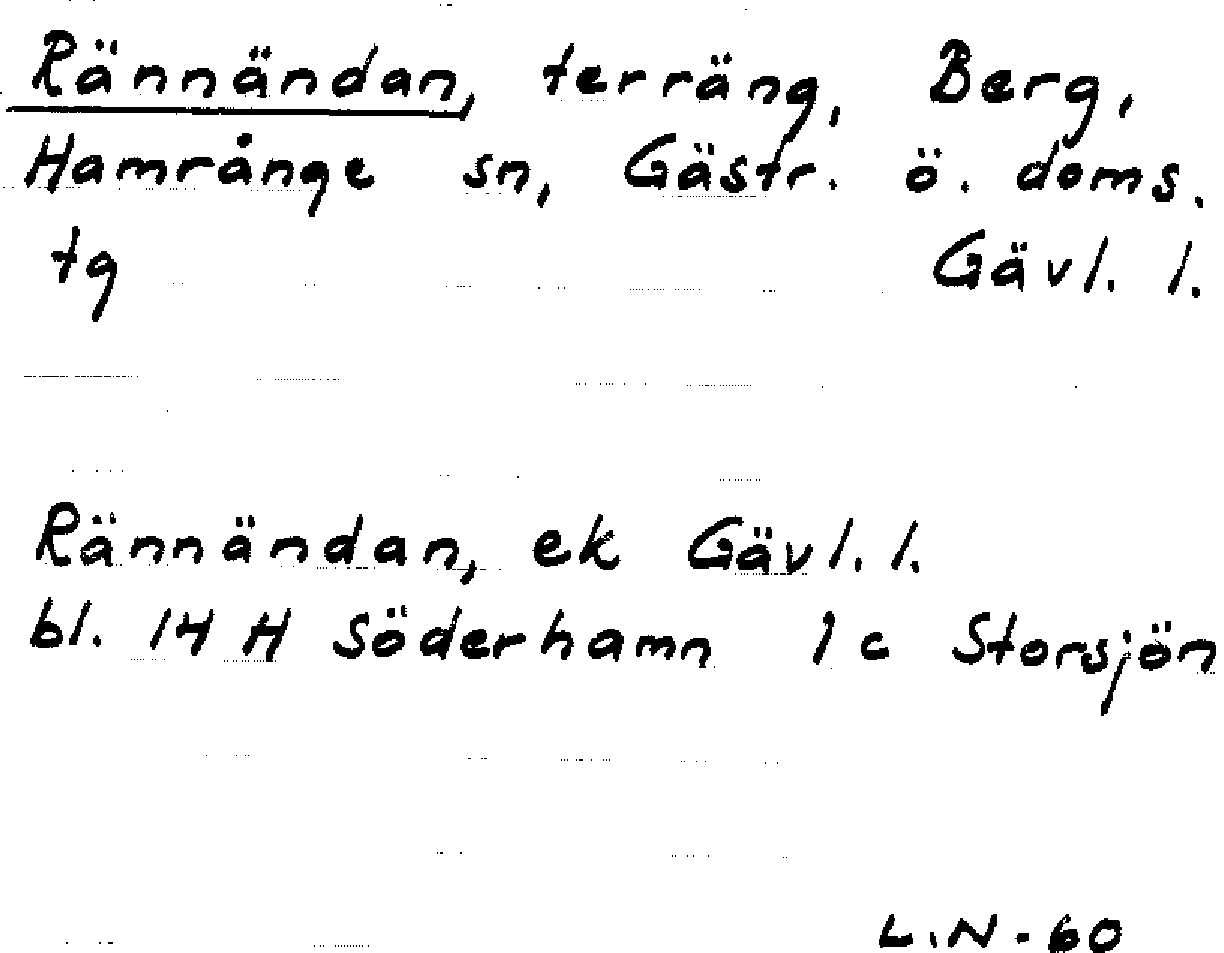 Rännändan, terräng, Berg,
Hamrånge sn, Gästr. ö. doms.
tg Gävl. l.
Rännändan, ek Gävl. l.
bl. 14 H Söderhamn 1 c Storsjön
L.N - 60